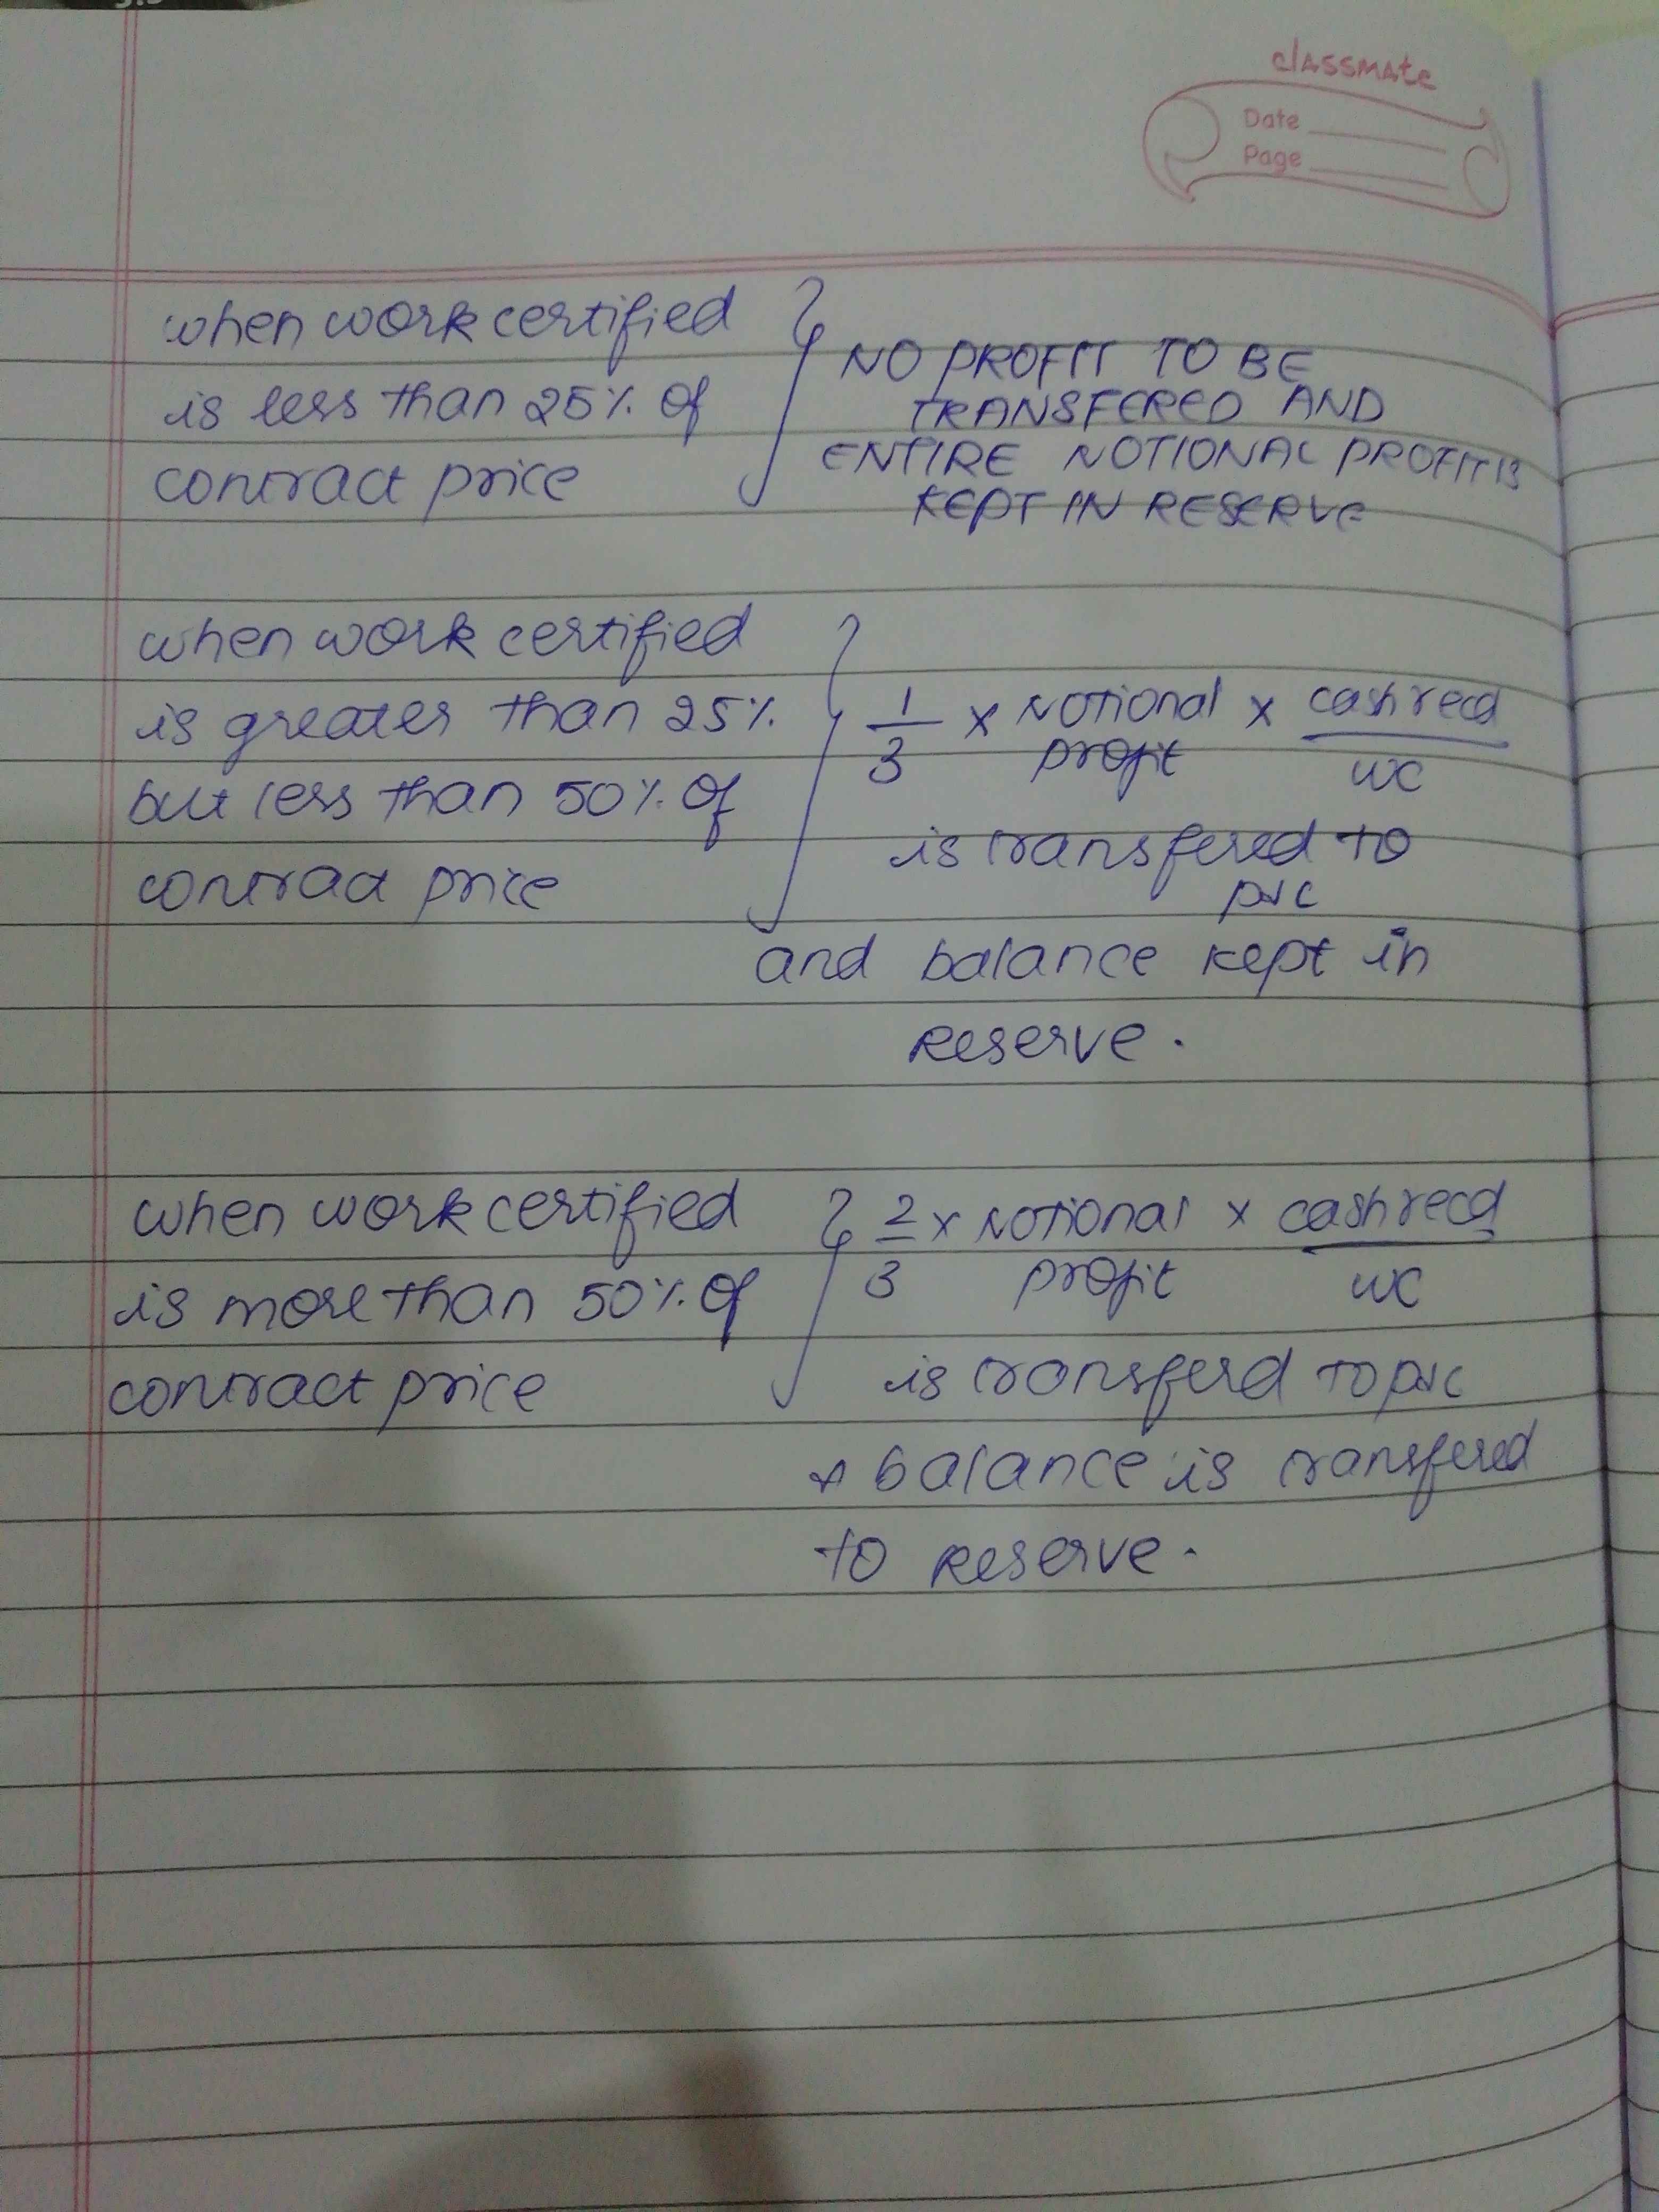 classmate
Date
Page
when work certified
is less than 25% of
contract price
NO PROFIT TO BE
TRANSFERED AND
ENTIRE NOTIONAL PROFIT IS
KEPT IN RESERVE
when work certified
is greater than 25%
but less than 50% of
contract price
1/3 x Notional profit x cash recd/wc
is transfered to
and balance kept in
Reserve.
when work certified
is more than 50% of
contract price
2/3 x Notional profit x cash recd/wc
is transferd to
balance is transfered
to Reserve.